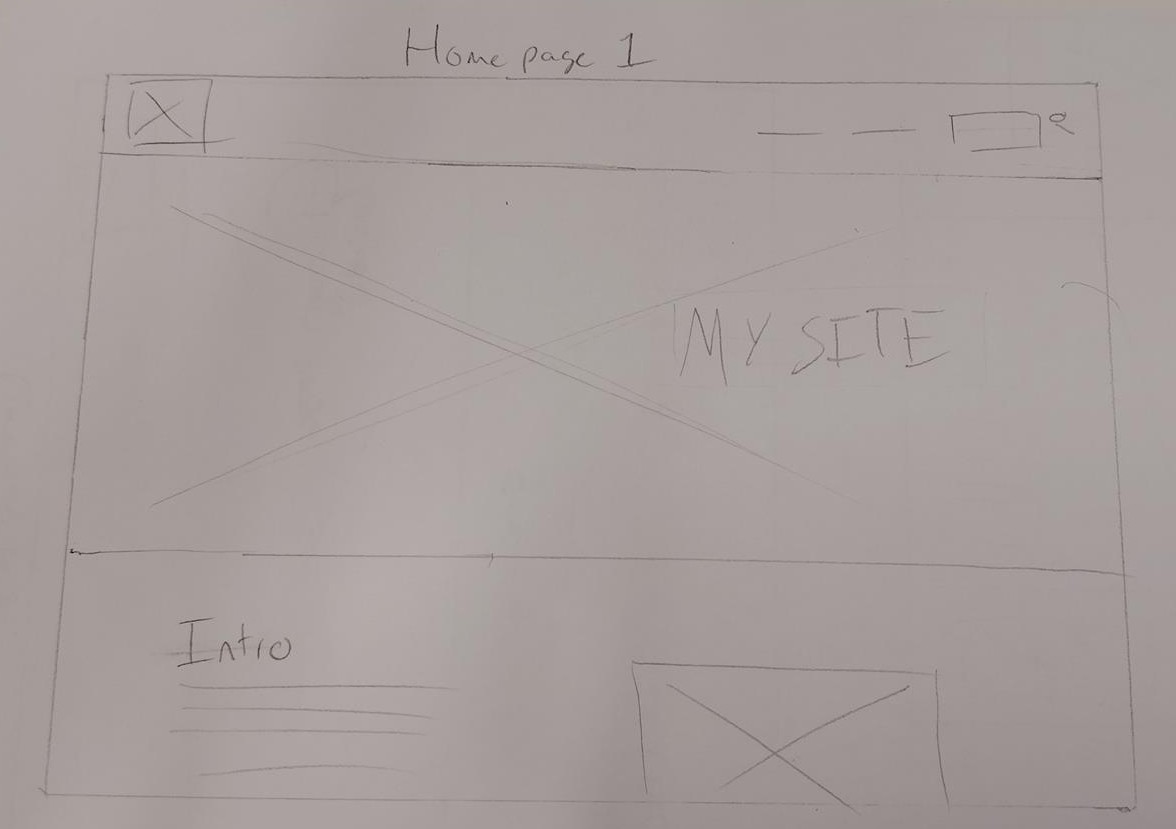 Home page 1
MY SITE
Intro